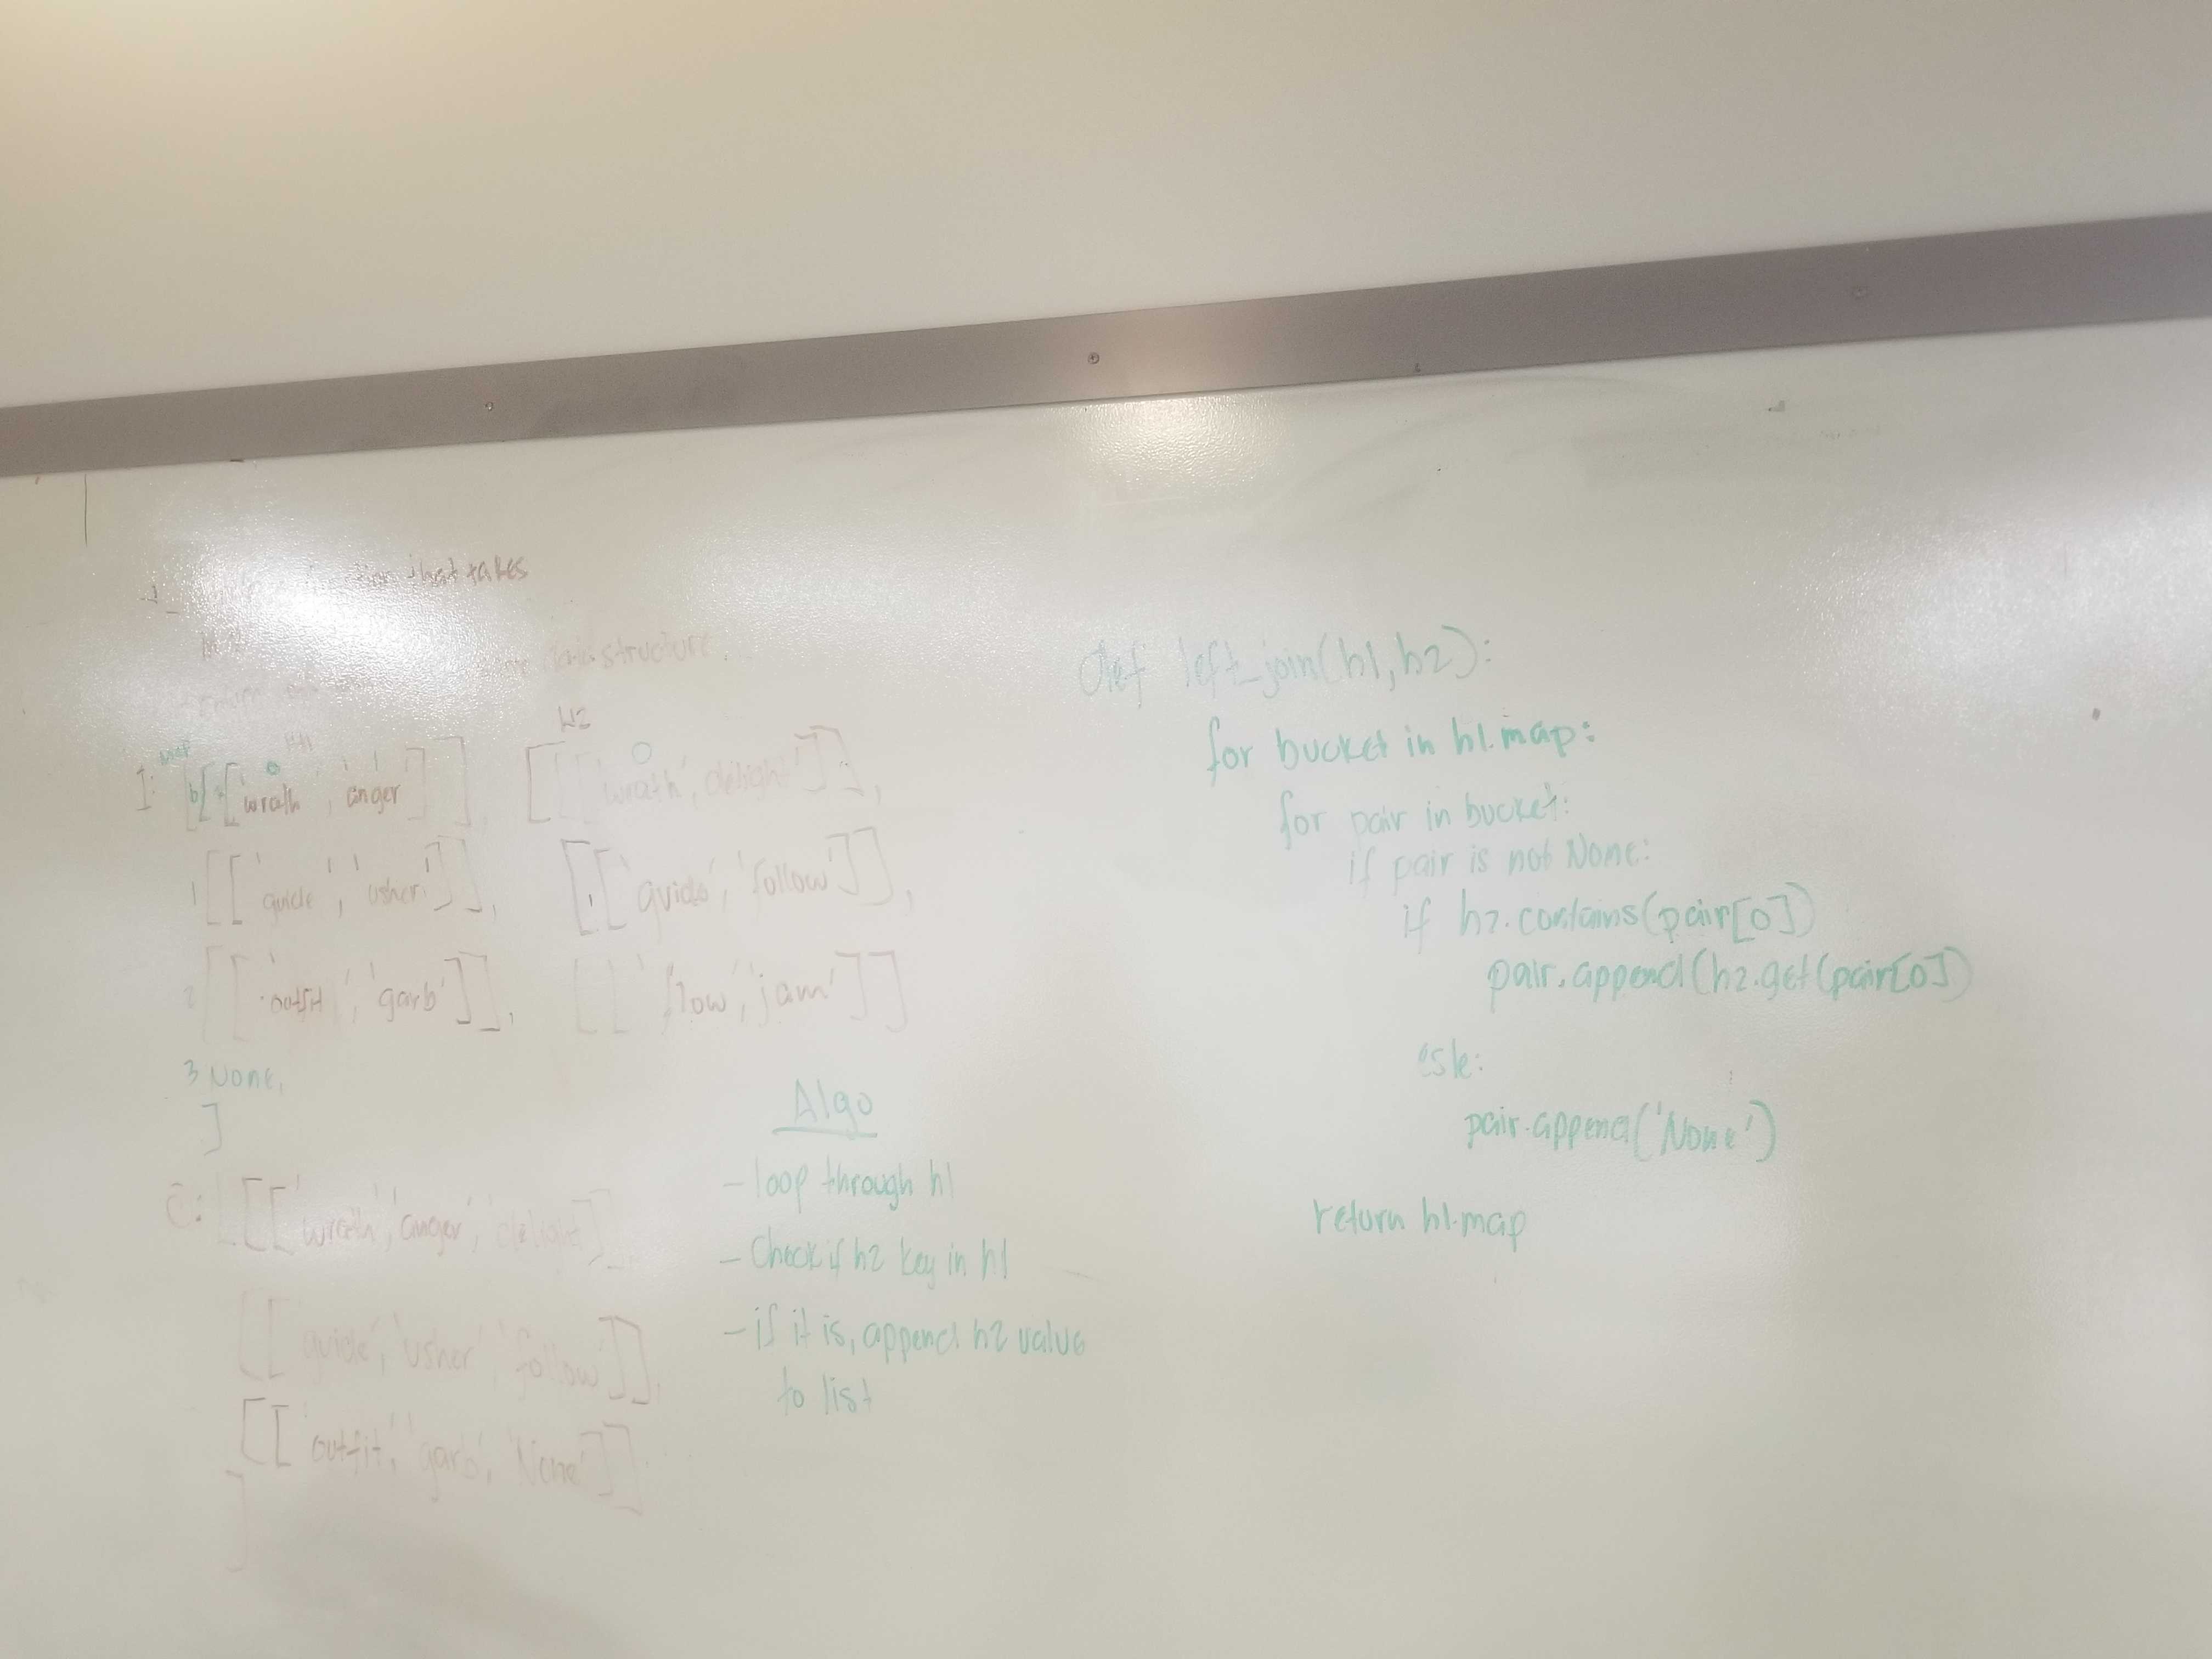 function that takes
data structure
map H1
H2
I: [b[[0 'wrath', 'anger']],
[[['wrath', 'delight']],
1 [['guide', 'usher']],
[['guide', 'follow']],
2 [['outfit', 'garb']],
[['flow', 'jam']]
3 None,
]
O: [[['wrath', 'anger', 'delight']],
[['guide', 'usher', 'follow']],
[['outfit', 'garb', 'None']]
]
Algo
- loop through h1
- Check if h2 key in h1
- if it is, append h2 value
to list
def left_join(h1, h2):
for bucket in h1.map:
for pair in bucket:
if pair is not None:
if h2.contains(pair[0])
pair.append(h2.get(pair[0])
esle:
pair.append('None')
return h1.map